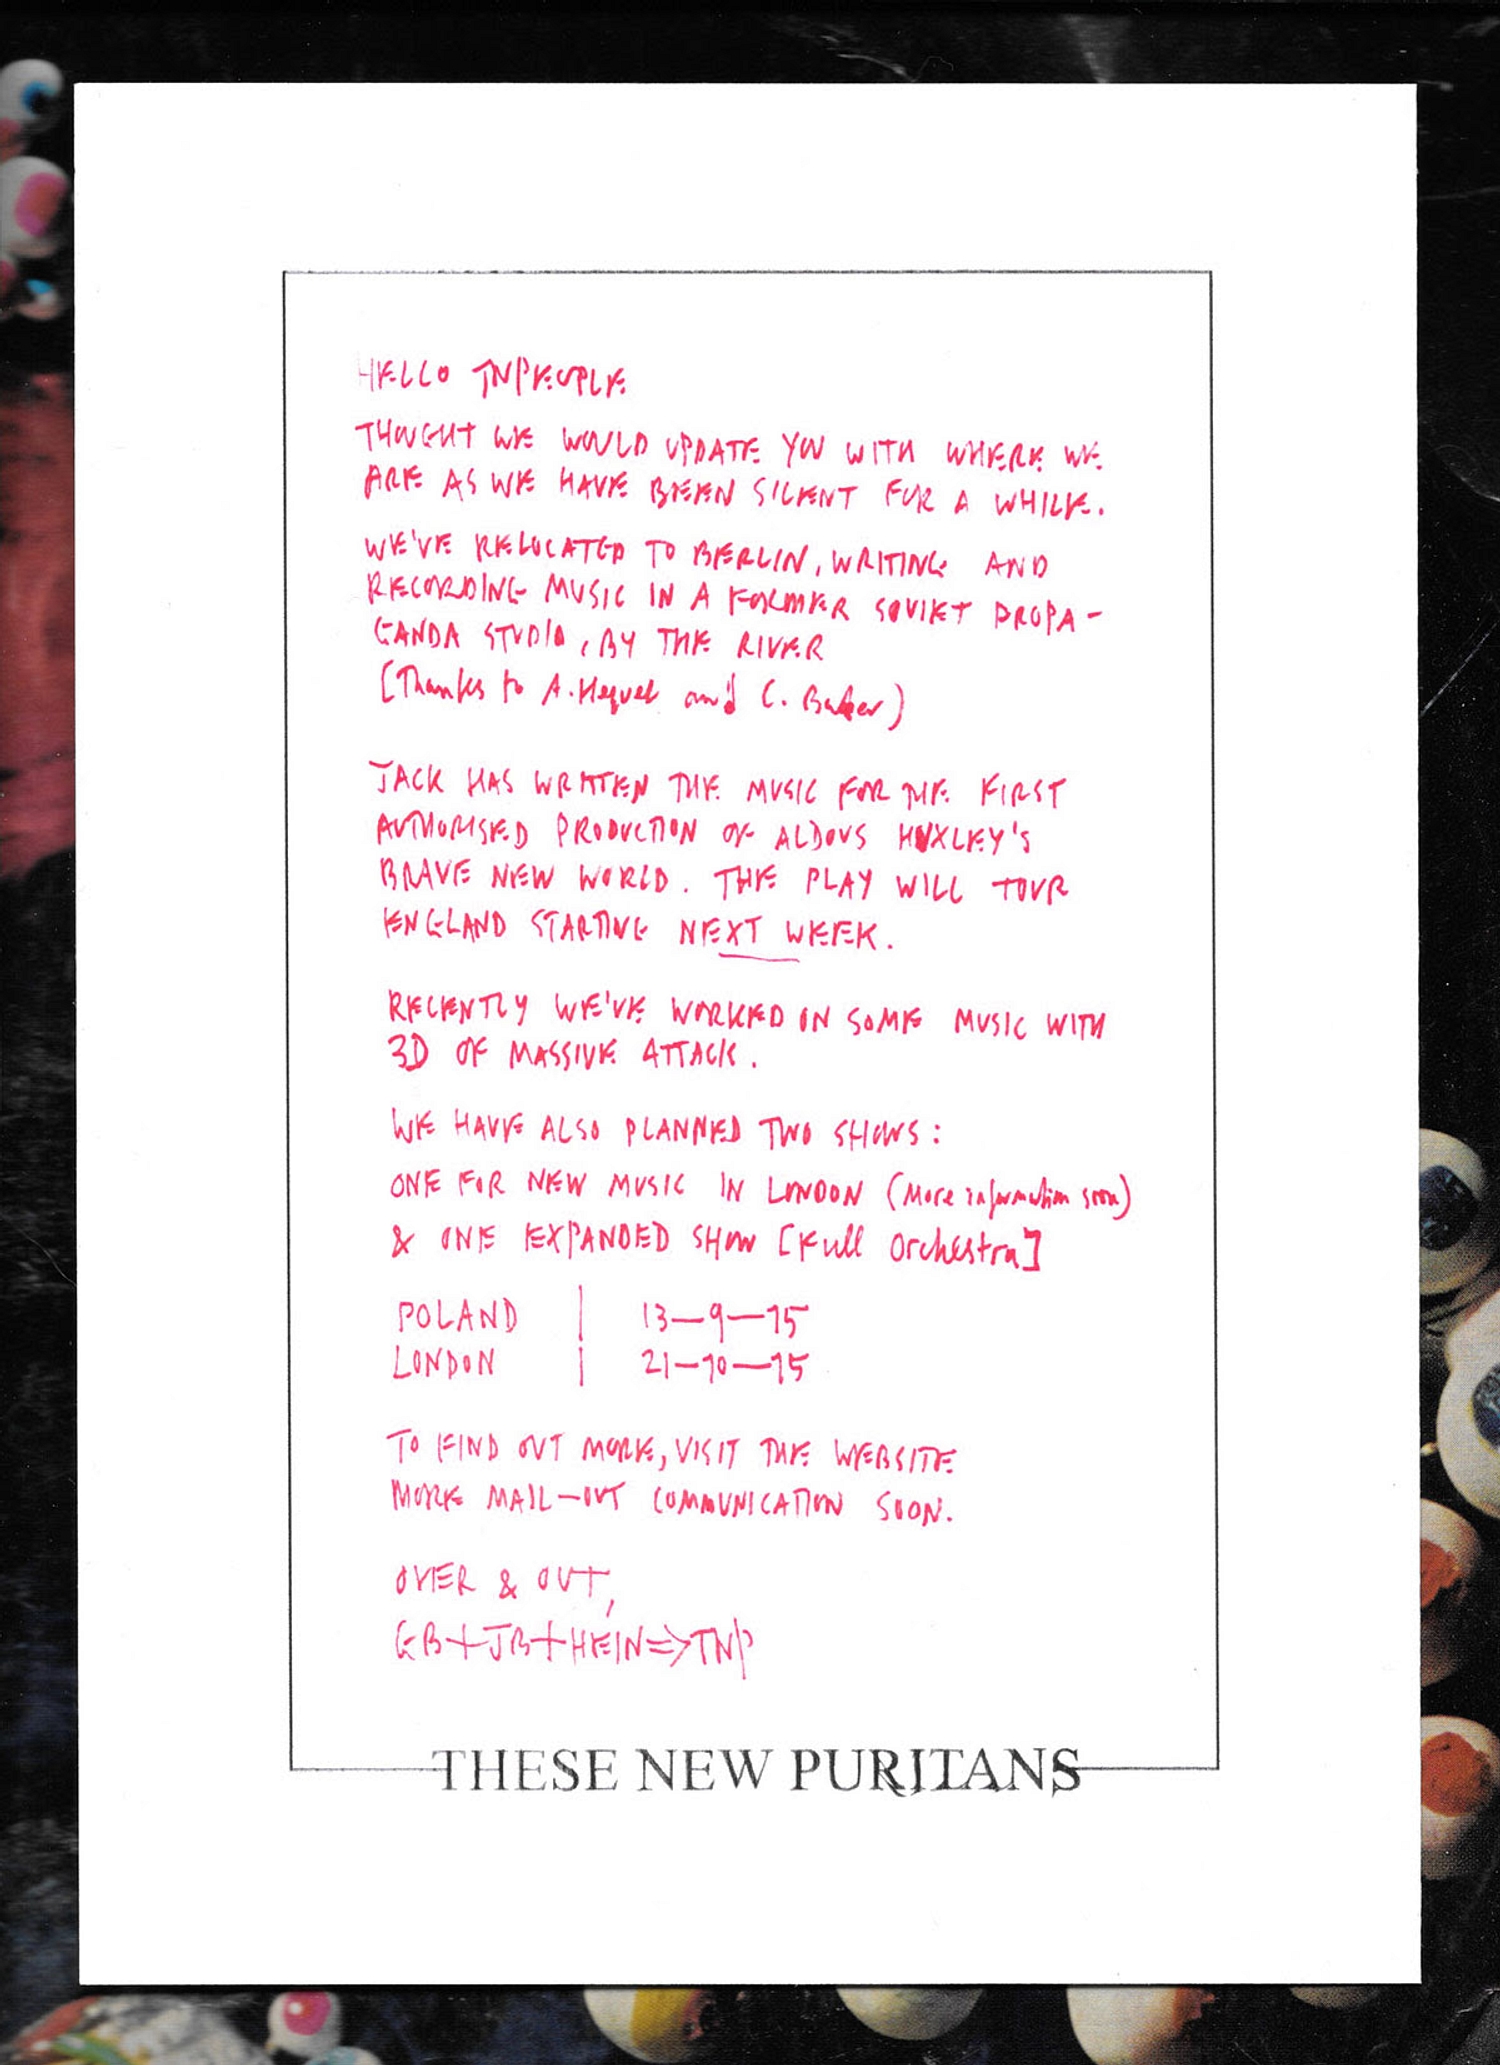 HELLO TNPEOPLE
THOUGHT WE WOULD UPDATE YOU WITH WHERE WE
ARE AS WE HAVE BEEN SILENT FOR A WHILE.
WE'VE RELOCATED TO BERLIN, WRITING AND
RECORDING MUSIC IN A FORMER SOVIET PROPA-
GANDA STUDIO, BY THE RIVER
(Thanks to A. and C. Baker)
JACK HAS WRITTEN THE MUSIC FOR THE FIRST
AUTHORISED PRODUCTION OF ALDOUS HUXLEY'S
BRAVE NEW WORLD. THE PLAY WILL TOUR
ENGLAND STARTING NEXT WEEK.
RECENTLY WE'VE WORKED ON SOME MUSIC WITH
3D OF MASSIVE ATTACK.
WE HAVE ALSO PLANNED TWO SHOWS:
ONE FOR NEW MUSIC IN LONDON (More information soon)
& ONE EXPANDED SHOW [Full Orchestra]
POLAND | 13-9-15
LONDON | 21-10-15
TO FIND OUT MORE, VISIT THE WEBSITE
MORE MAIL-OUT COMMUNICATION SOON.
OVER & OUT,
GB+JB+HEIN=>TNP
THESE NEW PURITANS